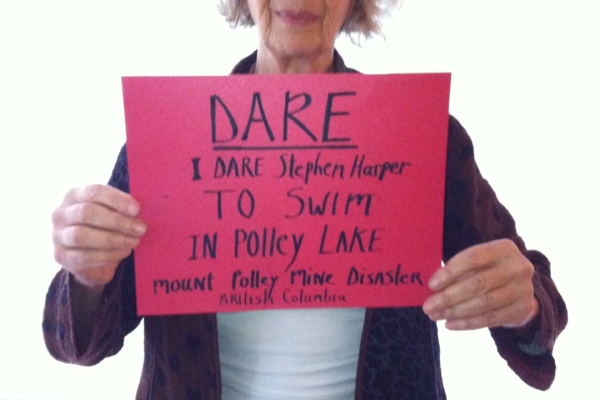 DARE
I DARE Stephen Harper
TO SWIM
IN POlley LAKE
mount Polley Mine Disaster
British Columbia